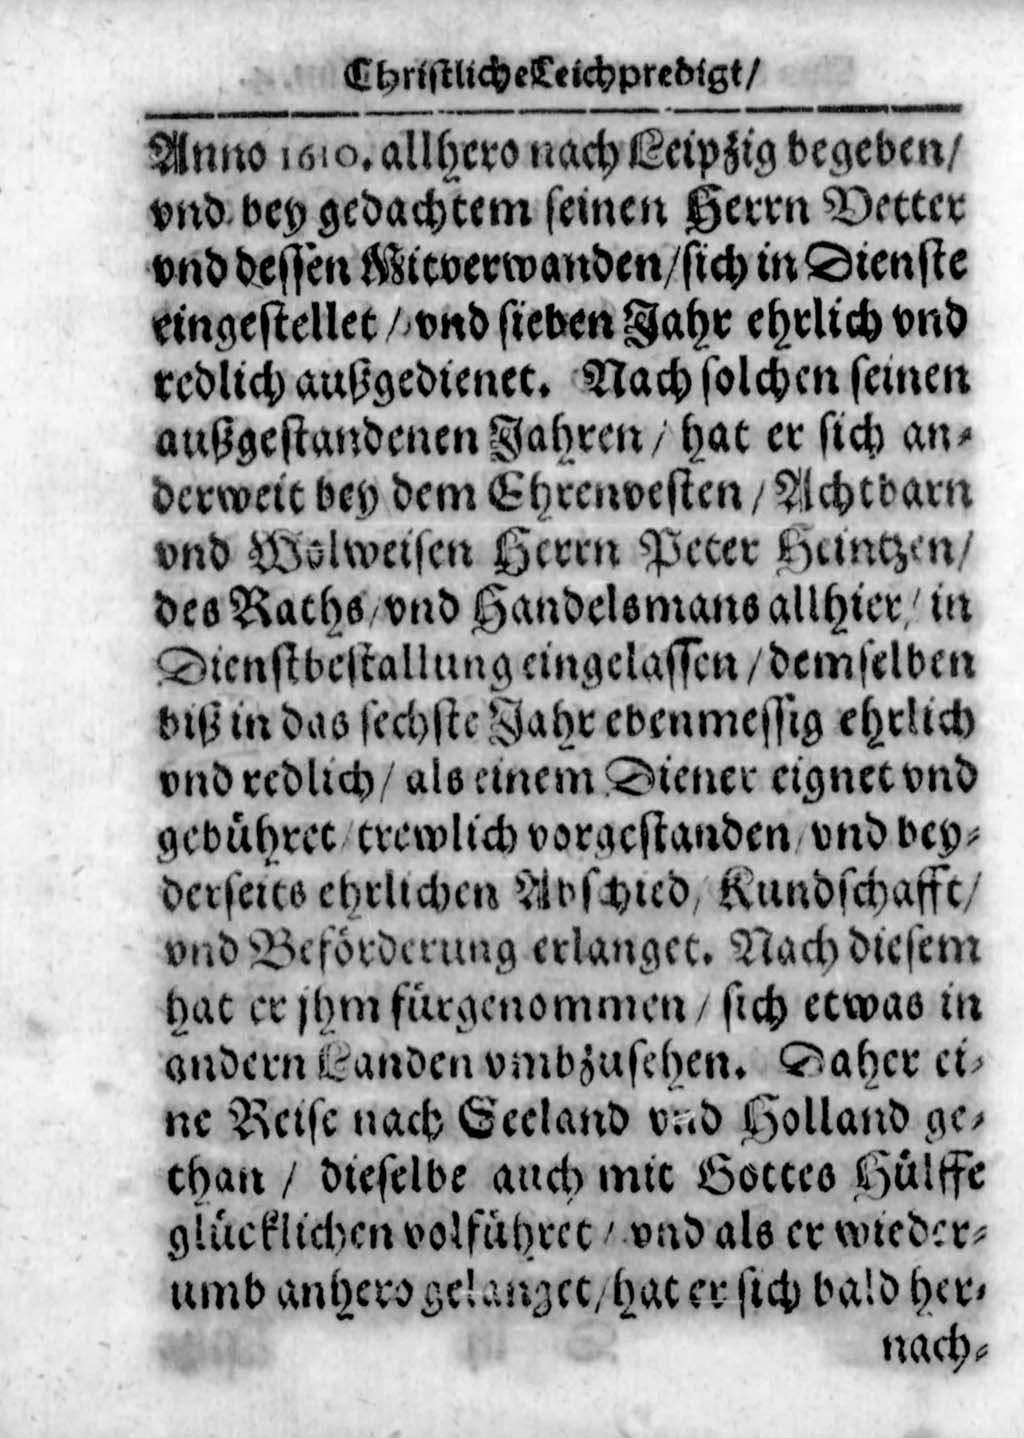 Christliche Leichpredigt/
Anno 1610. allhero nach Leipzig begeben/
vnd bey gedachtem seinen Herrn Vetter
vnd dessen Mitverwanden/sich in Dienste
eingestellet / vnd sieben Jahr ehrlich vnd
redlich außgedienet. Nach solchen seinen
außgestandenen Jahren / hat er sich an-
derweit bey dem Ehrenvesten / Achtbarn
vnd Wolweisen Herrn Peter Heintzen/
des Raths/vnd Handelsmans allhier/ in
Dienstbestallung eingelassen / demselben
biß in das sechste Jahr ebenmessig ehrlich
vnd redlich/ als einem Diener eignet vnd
gebühret/trewlich vorgestanden/vnd bey-
derseits ehrlichen Abschied/ Kundschafft/
vnd Beförderung erlanget. Nach diesem
hat er jhm fürgenommen / sich etwas in
andern Landen vmbzusehen. Daher ei-
ne Reise nach Seeland vnd Holland ge-
than / dieselbe auch mit Gottes Hülffe
glücklichen volführet / vnd als er wieder-
umb anhero gelanget/hat er sich bald her-
nach-